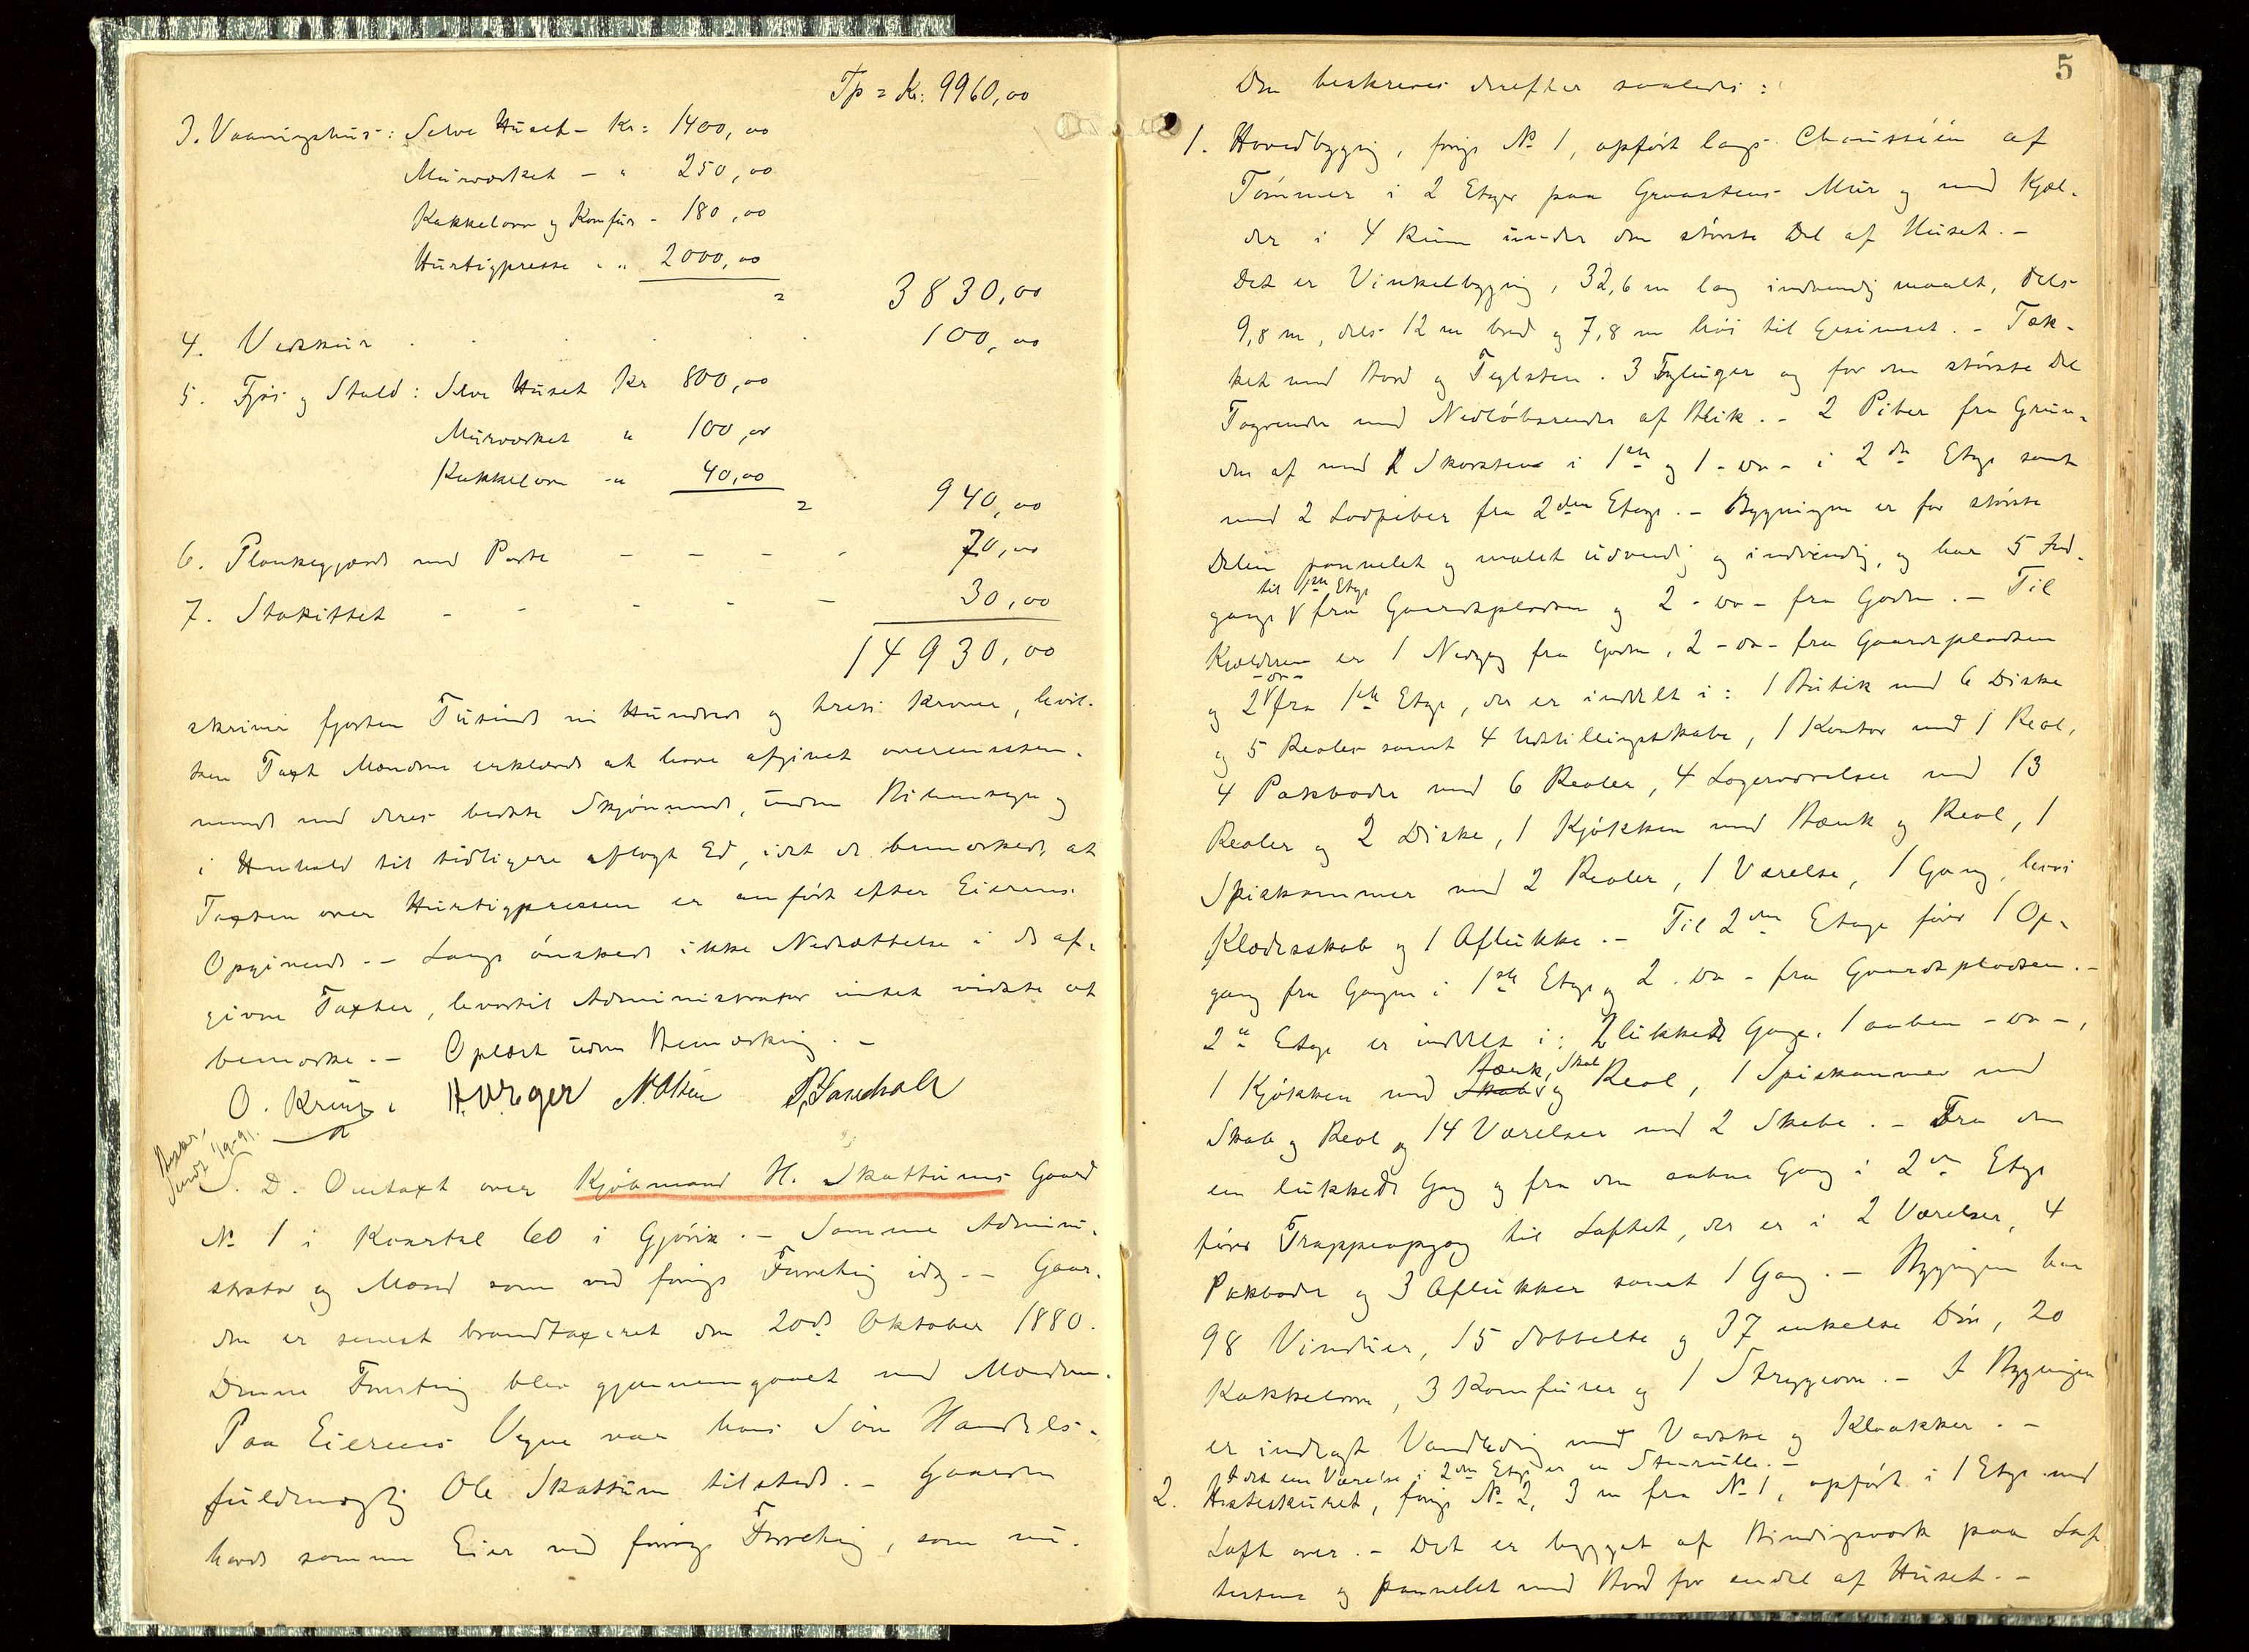 Tp = Kr. 9960,00
3. Vaaningshus: Selve Huset - Kr: 1400,00
Murværket - " 250,00
Kakkelovn og Komfur - 180,00
Hurtigpresse - " 2000,00
= 3830,00
4. Vedskur . . . . . 100,00
5. Fjøs og Stald: Selve Huset Kr 800,00
Murværket " 100,00
Kakkelovn - " 40,00
= 940,00
6. Plankegjærde med Porte - - - - 70,00
7. Stakittet - - - - - 30,00
14930,00
skriver fjorten Tusinde ni Hundrede og treti Kroner, hvil-
ken Taxt Mændene erklærede at have afgivet overensstem-
mende med deres bedste Skjønnende, uden Bihensyn og
i Henhold til tidligere aflagt Ed, idet de bemærkede, at
Taxten over Hurtigpressen er anført efter Eierens
Opgivende. - Lange ønskede ikke Nedsættelse i de af-
givne Taxter, hvortil Administrator intet vidste at
bemærke. - Oplæst uden Bemærkning. -
O. Krüger
1/9-91.
S. D. Omtaxt over Kjøbmand H. Skattums Gaard
No 1 i Kvartal 60 i Gjøvik. - Samme Admini-
strator og Mænd som ved forrige Forretning idag. - Gaar-
den er senest brandtaxeret den 20de Oktober 1880.
Denne Forretning blev gjennemgaaet med Mændene.
Paa Eierens Vegne var hans Søn Handels-
fuldmægtig Ole Skattum tilstede. - Gaarden
havde samme Eier ved forrige Forretning, som nu.
5
Den beskrives derefter saaledes:
1. Hovedbygning, forrige No 1, opført langs Chausséen af
Tømmer i 2 Etager paa Graastens Mur og med Kjæl-
der i 4 Rum under den største Del af Huset. -
Det er Vinkelbygning, 32,6 m lang indvendig maalt, dels
9,8 m, dels 12 m bred og 7,8 m høi til Gesimset. - Tæk-
ket med Bord og Teglsten. 3 Fløie og for den største Del
Tagrender med Nedløbsrender af Blik. - 2 Piber fra Grun-
den af med Skorstene i 1ste og 1 - do - i 2den Etage samt
med 2 Lodpiber fra 2den Etage. - Bygningen er for største
Delen pannelet og malet udvendig og indvendig, og har 5 Ind-
til 1ste Etage
gange fra Gaardspladsen og 2 - do - fra Gaden. - Til
Kjælderen er 1 Nedgang fra Gaden, 2 - do - fra Gaardspladsen
- do -
og 2 fra 1ste Etage, der er inddelt i: 1 Butik med 6 Diske
og 5 Reoler samt 4 Udstillingsskabe, 1 Kontor med 1 Reol,
4 Pakboder med 6 Reoler, 4 Lagerværelser med 13
Reoler og 2 Diske, 1 Kjøkken med Bænk og Reol, 1
Spiskammer med 2 Reoler, 1 Værelse, 1 Gang, hvori
Klædesskab og 1 Aflukke. - Til 2den Etage fører 1 Op-
gang fra Gangen i 1ste Etage og 2 - do - fra Gaardspladsen. -
2den Etage er inddelt i: 2 lukkede Gange, 1 aaben - do -,
Bænk, Skab
1 Kjøkken med Skab og Reol, 1 Spiskammer med
Skab og Reol og 14 Værelser med 2 Skabe. - Fra den
en lukkede Gang og fra den aabne Gang i 2den Etage
fører Trappeopgang til Loftet, der er i 2 Værelser, 4
Pakboder og 3 Aflukker samt 1 Gang. - Bygningen har
98 Vinduer, 15 dobbelte og 37 enkelte Døre, 20
Kakkelovne, 3 Komfurer og 1 Strygeovn. - I Bygningen
er indlagt Vandledning med Vadske og Kloakker. -
I det ene Værelse i 2den Etage er en Stenrulle. -
2. Hesteskuret, forrige No 2, 3 m fra No 1, opført i 1 Etage med
Loft over. - Det er bygget af Bindingsværk paa Laft-
testene og pannelet med Bord for endel af Huset. -